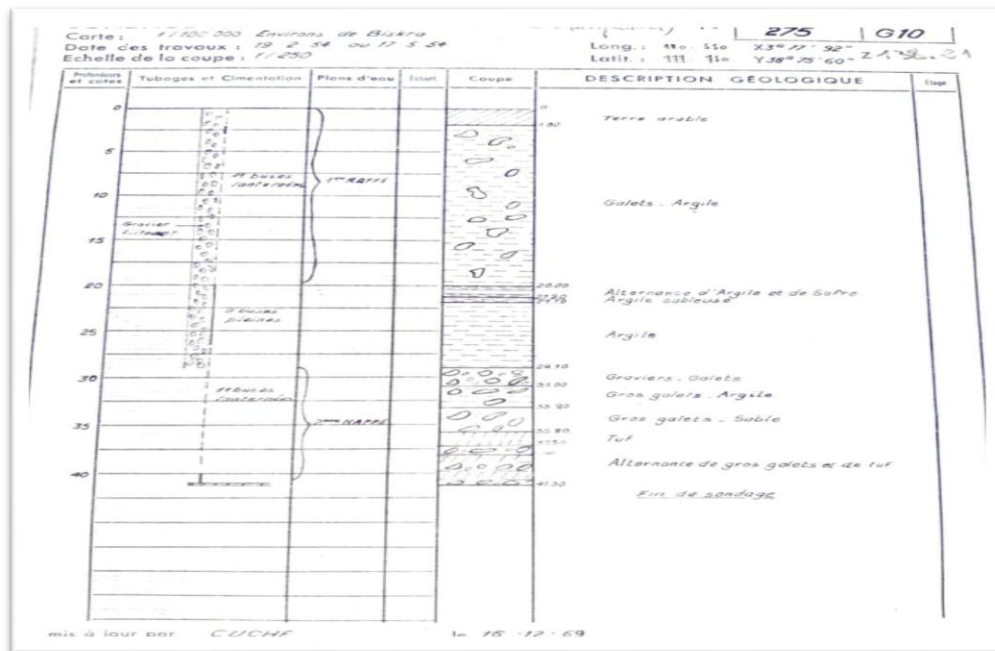 Carte : 1/100 000 Environs de Biskra
275 G10
Date des travaux : 19 2 54 au 17 5 54
Long. : X3° 77' 92"
Echelle de la coupe : 1/250
Latit. : Y38° 75' 60"
Profondeurs et cotes
Tubages et Cimentation
Plans d'eau
Echant.
Coupe
DESCRIPTION GÉOLOGIQUE
Etage
0
Terre arable
1.80
5
11 buses lanternées
1ère NAPPE
10
Galets - Argile
Gravier filtrant
15
20
20.00
Alternance d'Argile et de Safre
Argile sableuse
buses pleines
25
Argile
29.10
30
Graviers - Galets
31.00
11 buses lanternées
Gros galets - Argile
33.80
2ème NAPPE
35
Gros galets - Sable
Tuf
40
Alternance de gros galets et de tuf
41.30
Fin de sondage
mis à jour par CUCHE le 16-12-69